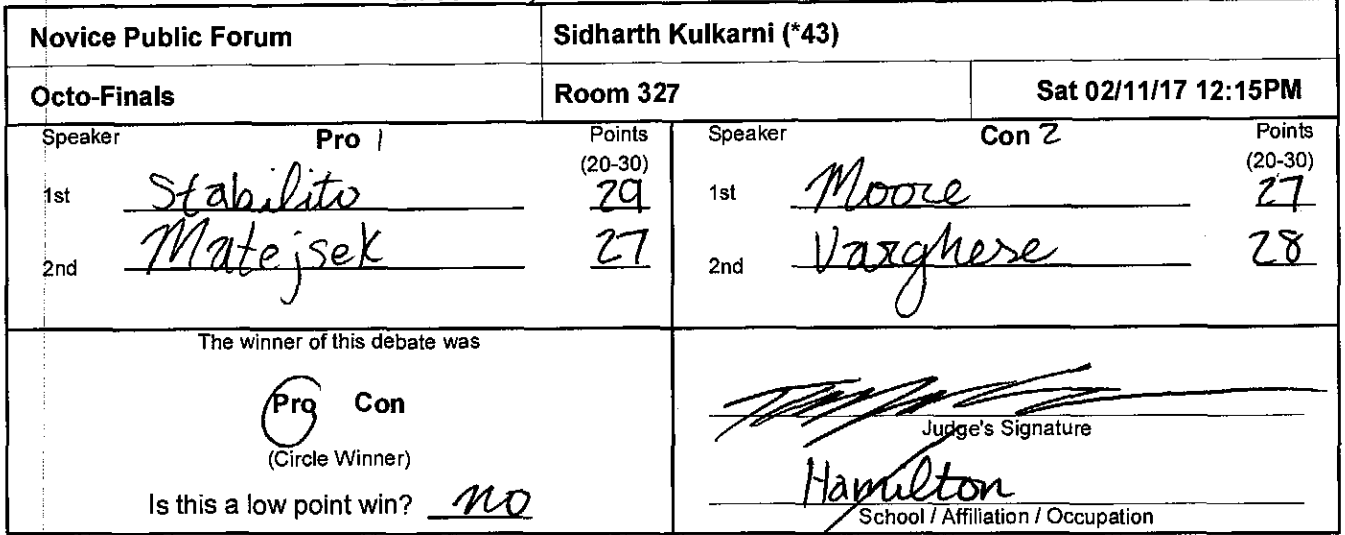 Novice Public Forum Sidharth Kulkarni (*43)
Octo-Finals Room 327 Sat 02/11/17 12:15PM
Speaker Pro 1 Points
(20-30)
1st Stabilito 29
2nd Matejsek 27
Speaker Con 2 Points
(20-30)
1st Moore 27
2nd Varghese 28
The winner of this debate was
Pro Con
(Circle Winner)
Is this a low point win? no
Judge's Signature
Hamilton
School / Affiliation / Occupation